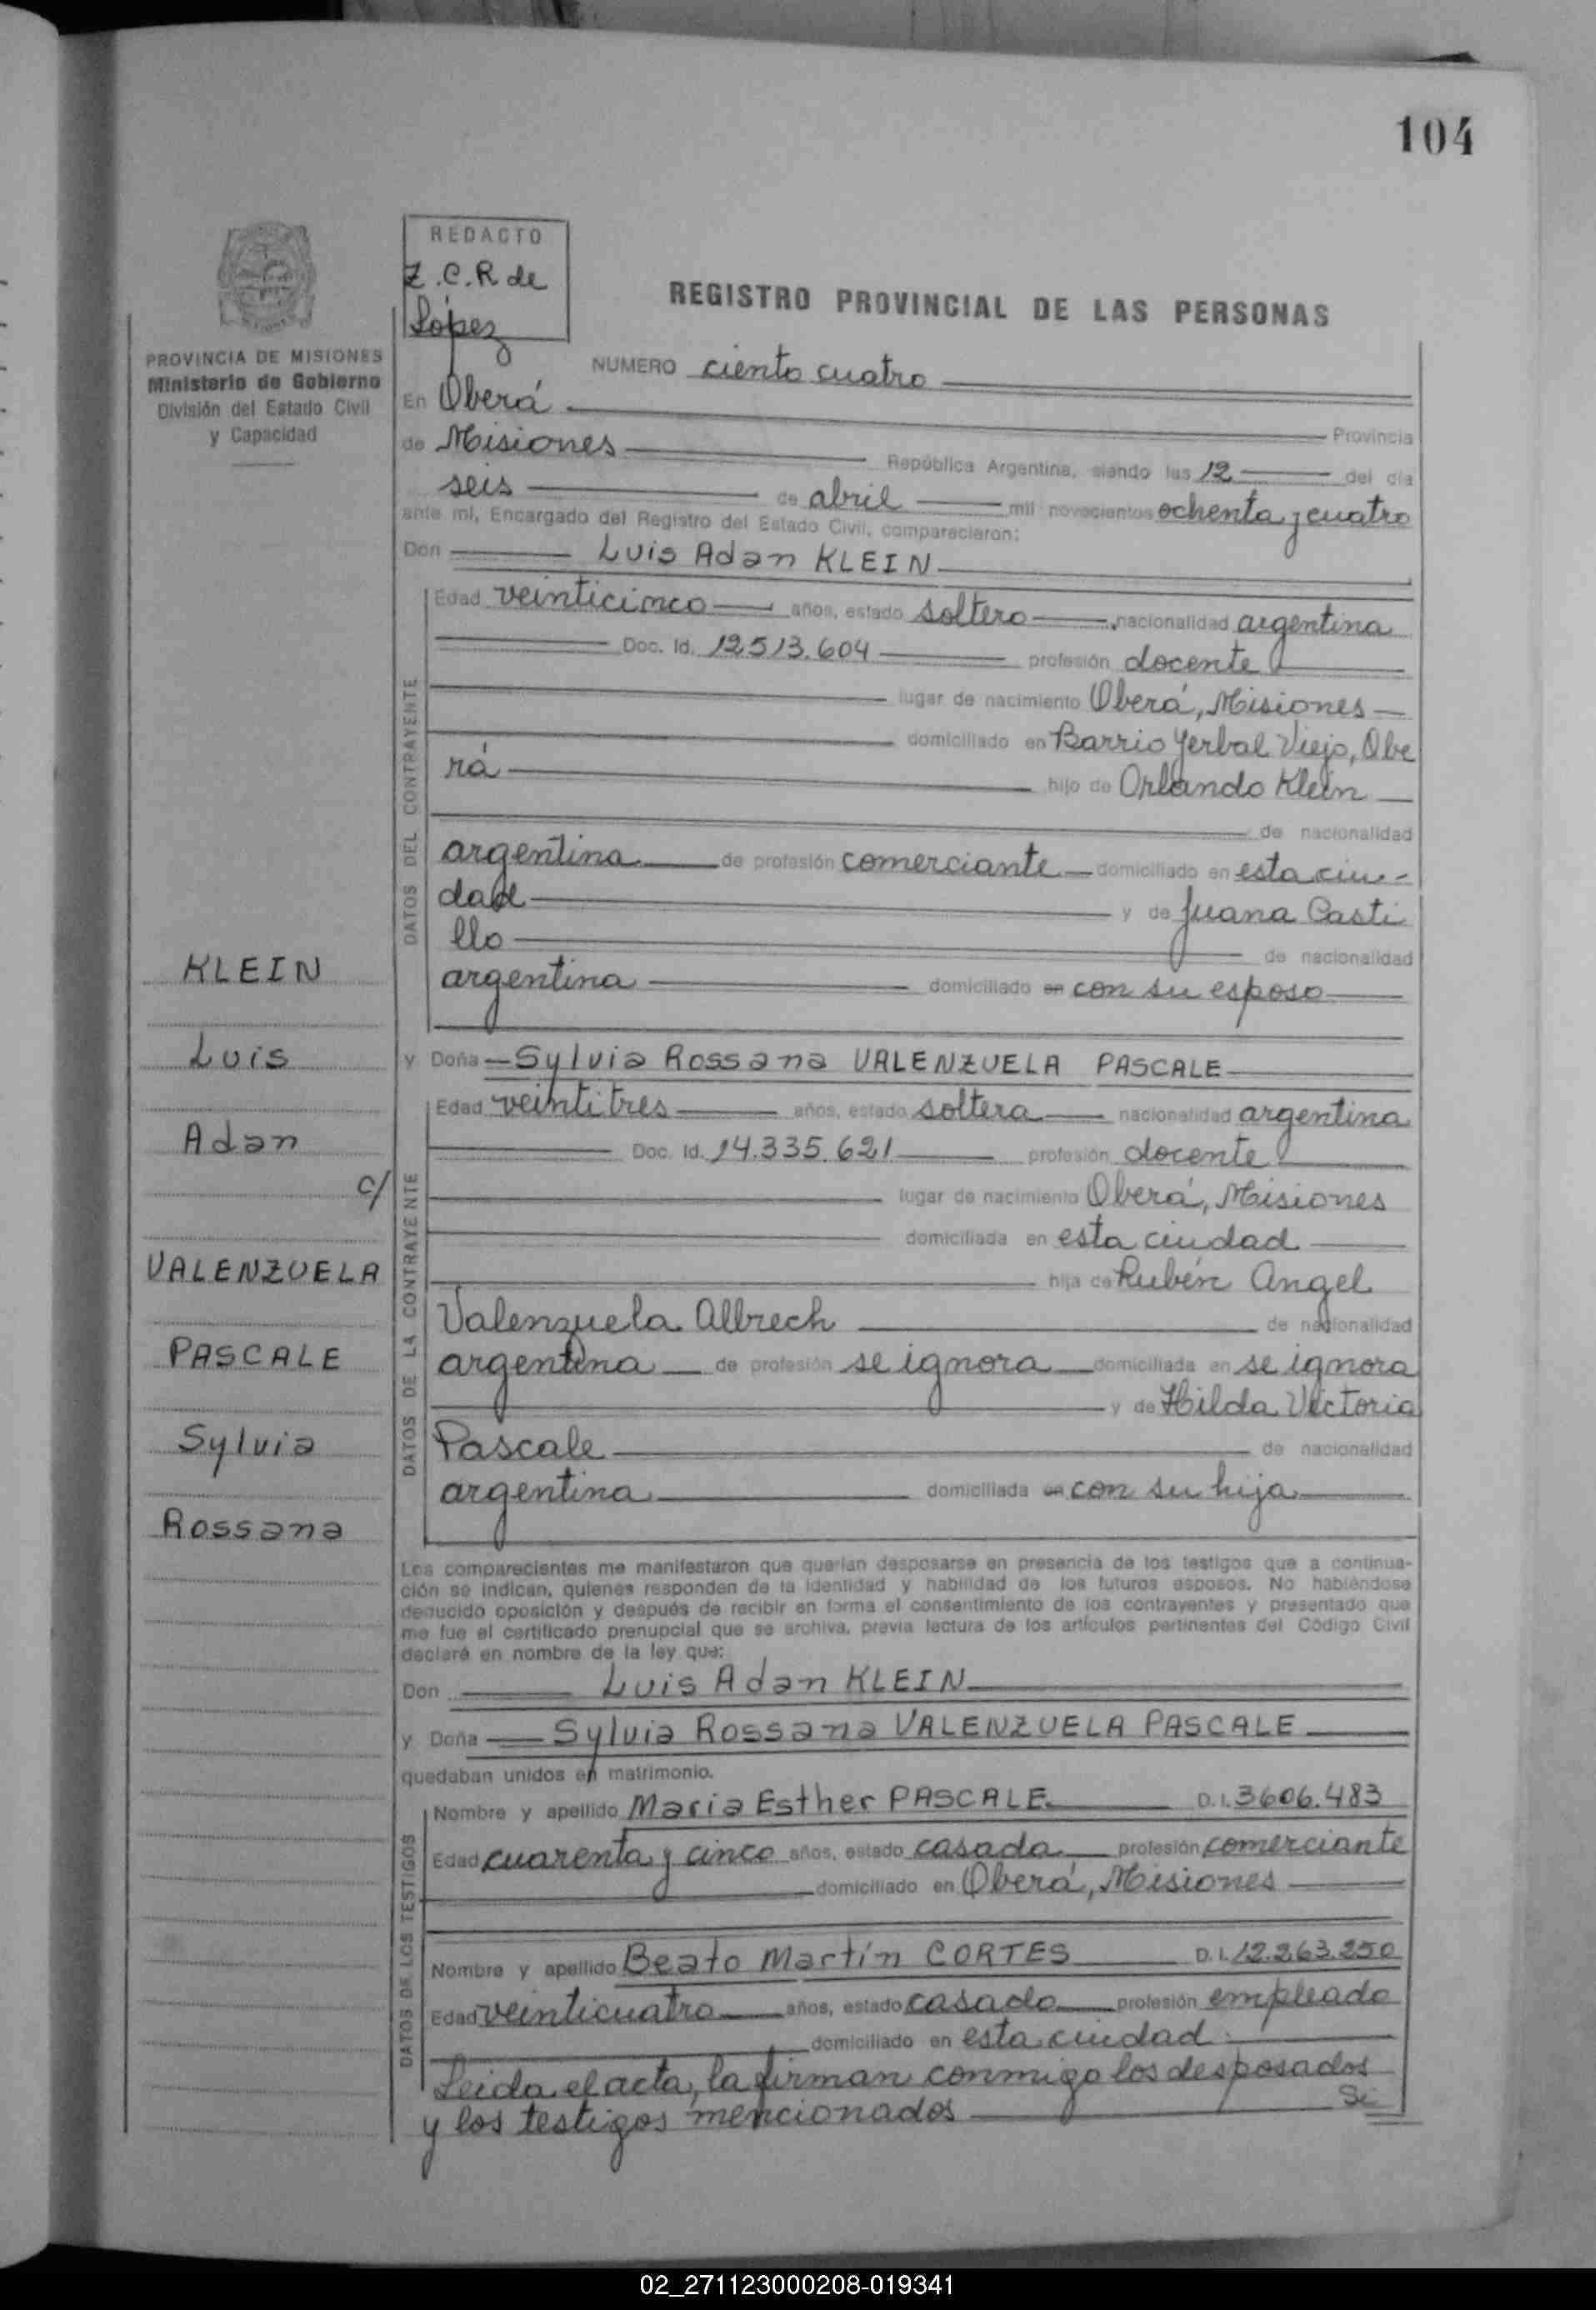 104
REDACTO
Z.C.R de
López
REGISTRO PROVINCIAL DE LAS PERSONAS
PROVINCIA DE MISIONES
Ministerio de Gobierno
División del Estado Civil
y Capacidad
NUMERO ciento cuatro
En Oberá Provincia
de Misiones República Argentina, siendo las 12 del día
seis de abril mil novecientos ochenta y cuatro
ante mi, Encargado del Registro del Estado Civil, comparecieron:
Don Luis Adan KLEIN
DATOS DEL CONTRAYENTE
Edad veinticinco años, estado soltero, nacionalidad argentina
Doc. Id. 12.513.604 profesión docente
lugar de nacimiento Oberá, Misiones
domiciliado en Barrio Yerbal Viejo, Obe
rá hijo de Orlando Klein
de nacionalidad
argentina de profesión comerciante domiciliado en esta ciu-
dad y de Juana Casti
llo de nacionalidad
argentina domiciliado en con su esposo
KLEIN
Luis
Adan
c/
VALENZUELA
PASCALE
Sylvia
Rossana
y Doña Sylvia Rossana VALENZUELA PASCALE
DATOS DE LA CONTRAYENTE
Edad veintitres años, estado soltera nacionalidad argentina
Doc. Id. 14.335.621 profesión docente
lugar de nacimiento Oberá, Misiones
domiciliada en esta ciudad
hija de Rubén Angel
Valenzuela Albrech de nacionalidad
argentina de profesión se ignora domiciliada en se ignora
y de Hilda Victoria
Pascale de nacionalidad
argentina domiciliada en con su hija
Los comparecientes me manifestaron que querían desposarse en presencia de los testigos que a continua-
ción se indican, quienes responden de la identidad y habilidad de los futuros esposos. No habiéndose
deducido oposición y después de recibir en forma el consentimiento de los contrayentes y presentado que
me fue el certificado prenupcial que se archiva, previa lectura de los artículos pertinentes del Código Civil
declaré en nombre de la ley que:
Don Luis Adan KLEIN
y Doña Sylvia Rossana VALENZUELA PASCALE
quedaban unidos en matrimonio.
DATOS DE LOS TESTIGOS
Nombre y apellido Maria Esther PASCALE D.I. 3606.483
Edad cuarenta y cinco años, estado casada profesión comerciante
domiciliado en Oberá, Misiones
Nombre y apellido Beato Martín CORTES D.I. 12.263.250
Edad veinticuatro años, estado casado profesión empleado
domiciliado en esta ciudad.
Leida el acta, la firman conmigo los desposados
y los testigos mencionados
Si
02_271123000208-019341